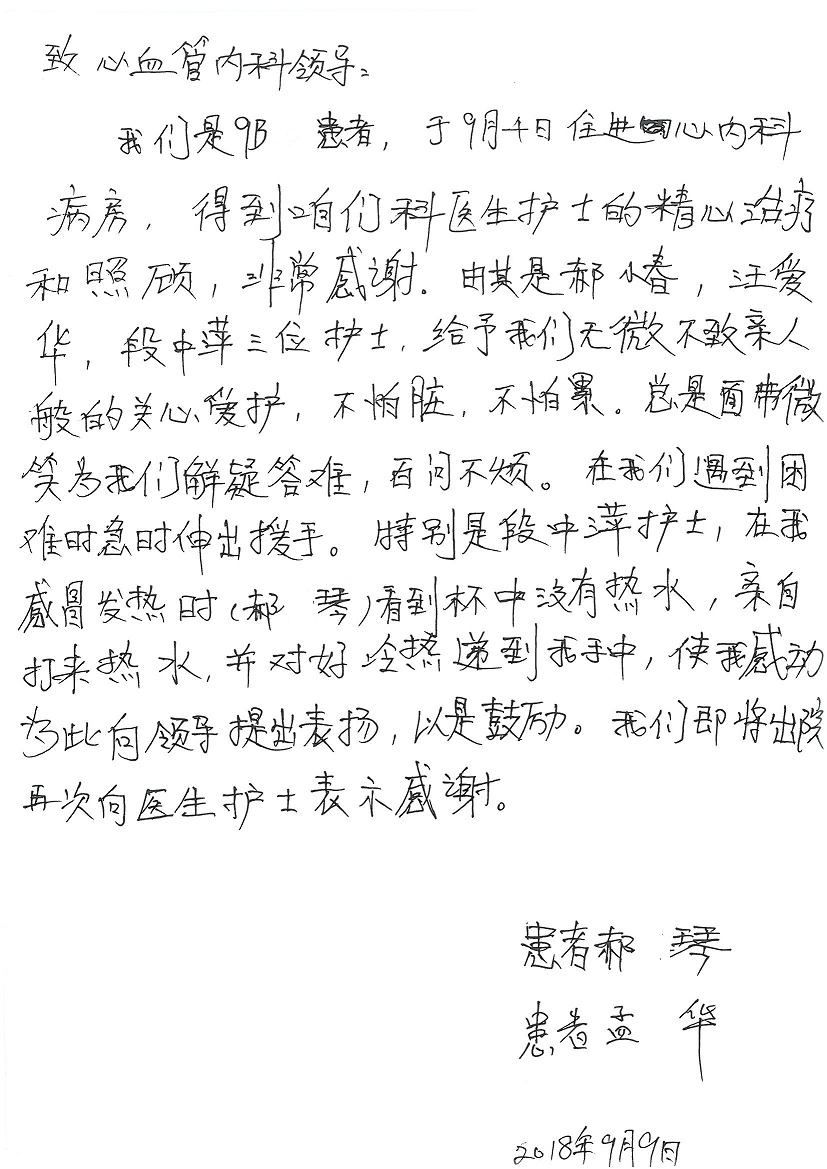 致心血管内科领导:
我们是9B 患者，于9月4日住进心内科
病房，得到咱们科医生护士的精心治疗
和照顾，非常感谢。由其是郝小春，汪爱
华，段中萍三位护士，给予我们无微不致亲人
般的关心爱护，不怕脏，不怕累。总是面带微
笑为我们解疑答难，百问不烦。在我们遇到困
难时急时伸出援手。特别是段中萍护士，在我
感冒发热时（郝 琴）看到杯中没有热水，亲自
打来热水，并对好冷热递到我手中，使我感动
为此向领导提出表扬，以是鼓励。我们即将出院
再次向医生护士表示感谢。
患者郝 琴
患者孟 华
2018年9月9日